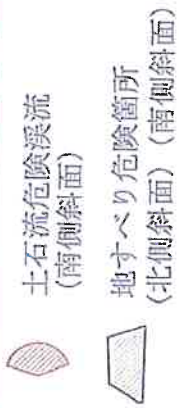 土石流危険渓流
(南側斜面)
地すべり危険箇所
(北側斜面) (南側斜面)